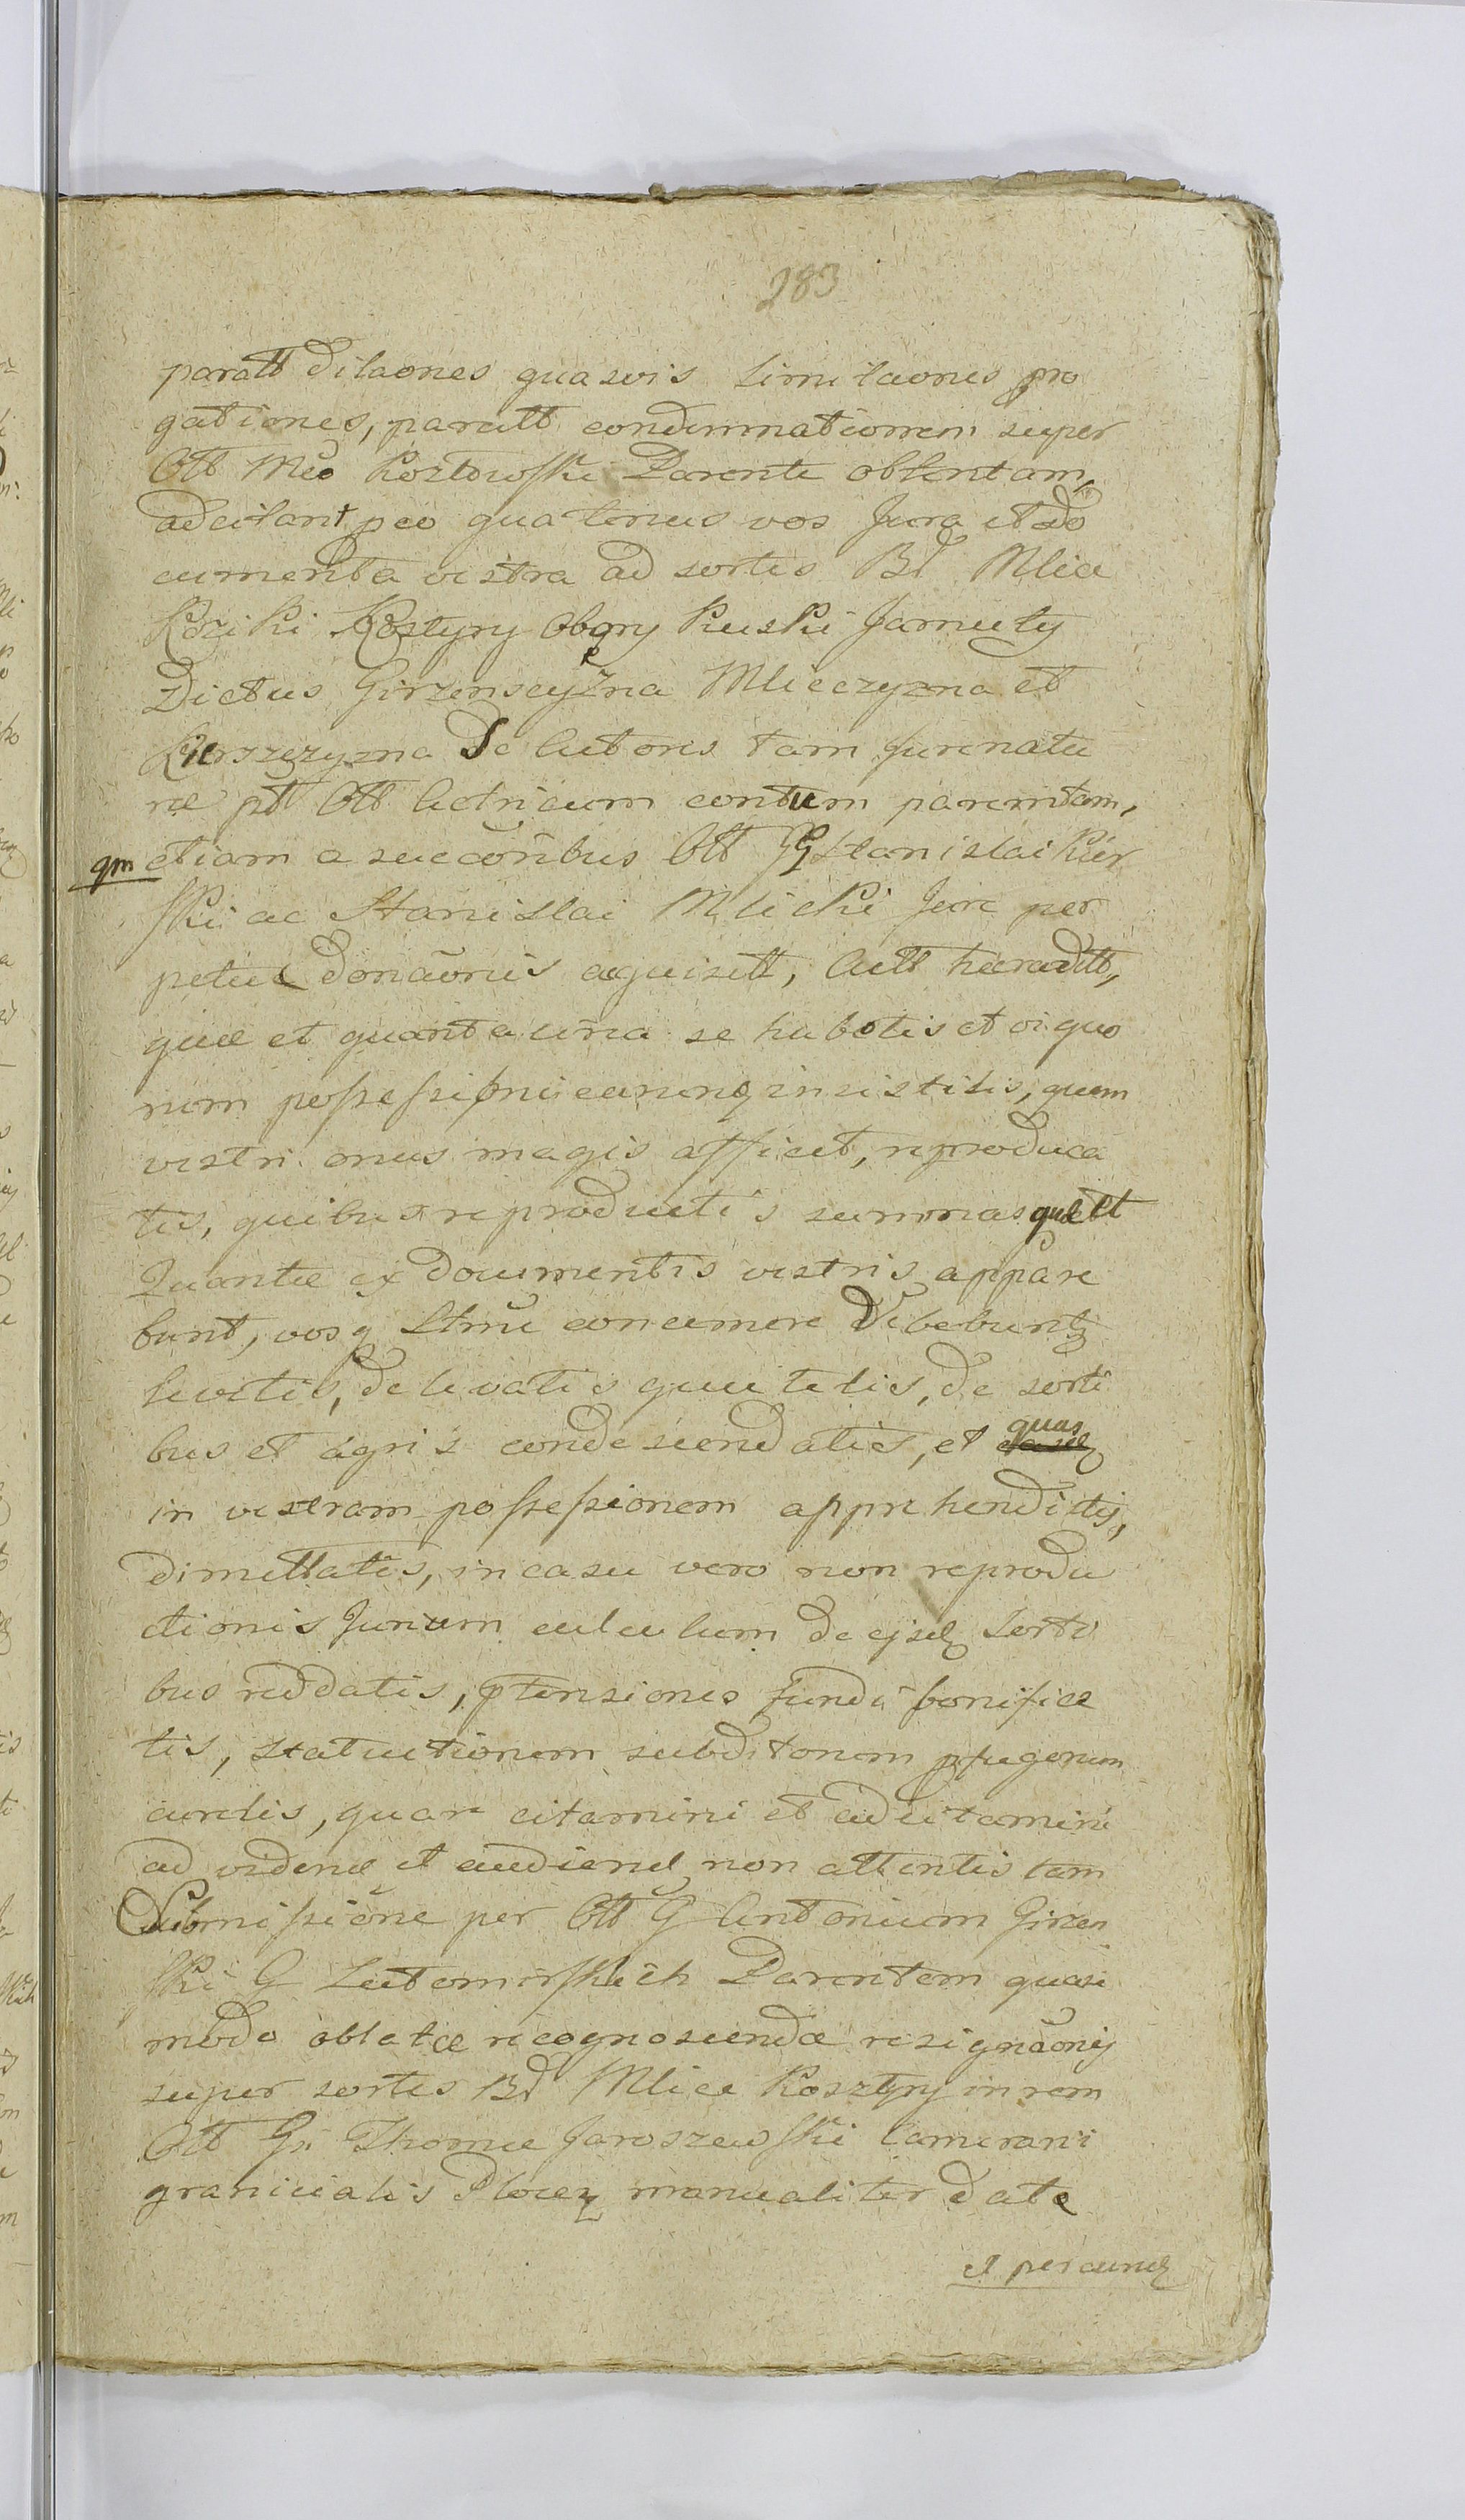 283
paratt dilaones quasvis limitaones pro
gationes, paratt condemnationem super
Ott Mco Kozłowski Parente obtentam,
adcitant peo quatenus vos Jura et do
cumenta vestra ad sortes Bd Mlice
Koziki Kostyry Obory Kuski Jarnuty
Dictus Girzenscyzna Mlieczyzna et
Kierszczyzna de
ræ pt Ott contum parentam,
qm etiam a succoribus Ott GG Stanislai Kier
ski ac Stanislai Mlicki Jure per
petuæ donaonis acquisitt, Autt hæreditt,
quæ et quanta una se habetis et vi quo
rum possessioni earumq insistitis, quem
vestri onus magis afficit, reproduca
tis, quibus reproductis summas quætt
Quantæ ex documentis vestris appare
bunt, vosq concernere debebunt
levetis, de levatis quietetis, de sorti
bus et agris condescendatis, et quas
in vestram possessionem apprehenditis,
dimittatis, in casu vero non reprodu
ctionis Jurium calculum de ejsd Sorti
bus reddatis, ptensiones fundi bonifice
tis, statuitionem subditorum pfugorum
curetis, quare citamini et adcitamini
ad vidend et audiend non attentis tam
Submissione per Ott G Antonium Girzen
ski G Lutomirskich Parentem quasi
modo oblatæ recognoscendæ resignaonis
super sortes Bd Mlice Kosztyry in rem
Ott Gi Thomæ Jaroszewski Camerarii
granicialis Plocen manualiter datæ
et per eund